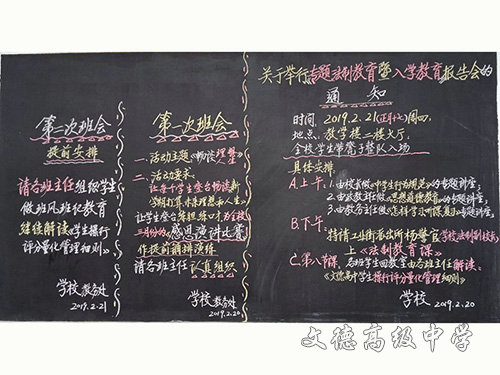 第二次班会
提前安排
请各班主任组织学生
做班风班纪教育
继续解读《学生操行
评分量化管理细则》
学校 教务处
2019.2.21
第一次班会
一. 活动主题《畅谈理想》
二. 活动要求:
让每个学生登台畅谈新
学期打算未来理想和人生,
让学生登台锻炼口才为全校
三月份的感恩演讲比赛
作提前铺排演练
请各班主任认真组织
学校 教务处
2019.2.20
关于举行专题法制教育暨入学教育报告会的
通 知
时间: 2019.2.21(正月十七)周四.
地点: 教学楼二楼大厅.
全校学生带凳子整队入场
具体安排
A. 上午: 1. 由校长做《中学生行为规范》的专题讲座;
2. 由政教主任做《思想道德教育》的专题讲座;
3. 由教务主任做《怎样学习听课》的专题讲座;
B. 下午:
特请工业街派出所杨警官
上《法制教育课》
C. 第八节课, 各班学生回教室由各班主任解读:
《文德高中学生操行评分量化管理细则》
学校. 2019.2.20
文德高级中学